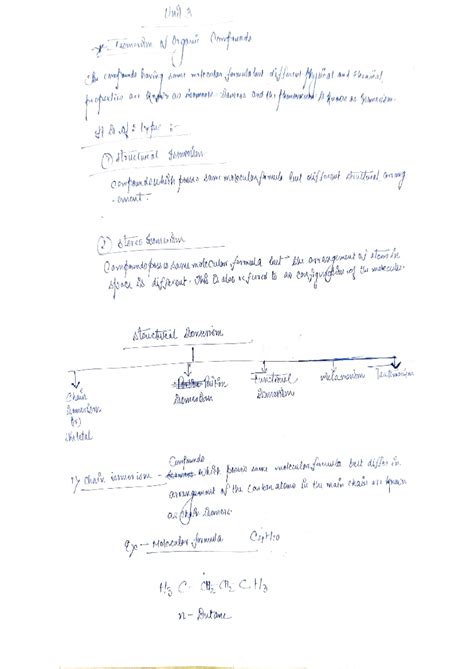 Unit 3
Isomerism of Organic Compounds
The compounds having same molecular formula but different physical and chemical
properties are known as isomers. Isomers and the phenomenon is known as Isomerism.
It is of 2 type :-
① Structural Isomerism
Compounds which posses same molecular formula but different structural arrang
-ement.
② Stereo Isomerism
Compounds posses same molecular formula but the arrangement of atom in
space is different. This is also referred to as configuration of the molecule.
Structural Isomerism
Chain Isomerism (or) Skeletal
Position Isomerism
Functional Isomerism
Metamerism
Tautomerism
1) Chain isomerism - Compounds which posses same molecular formula but differ in
arrangement of the Carbon atoms in the main chain are known
as Chain Isomers.
Ex - Molecular formula C4H10
H3 C CH2 CH2 CH3
n - Butane